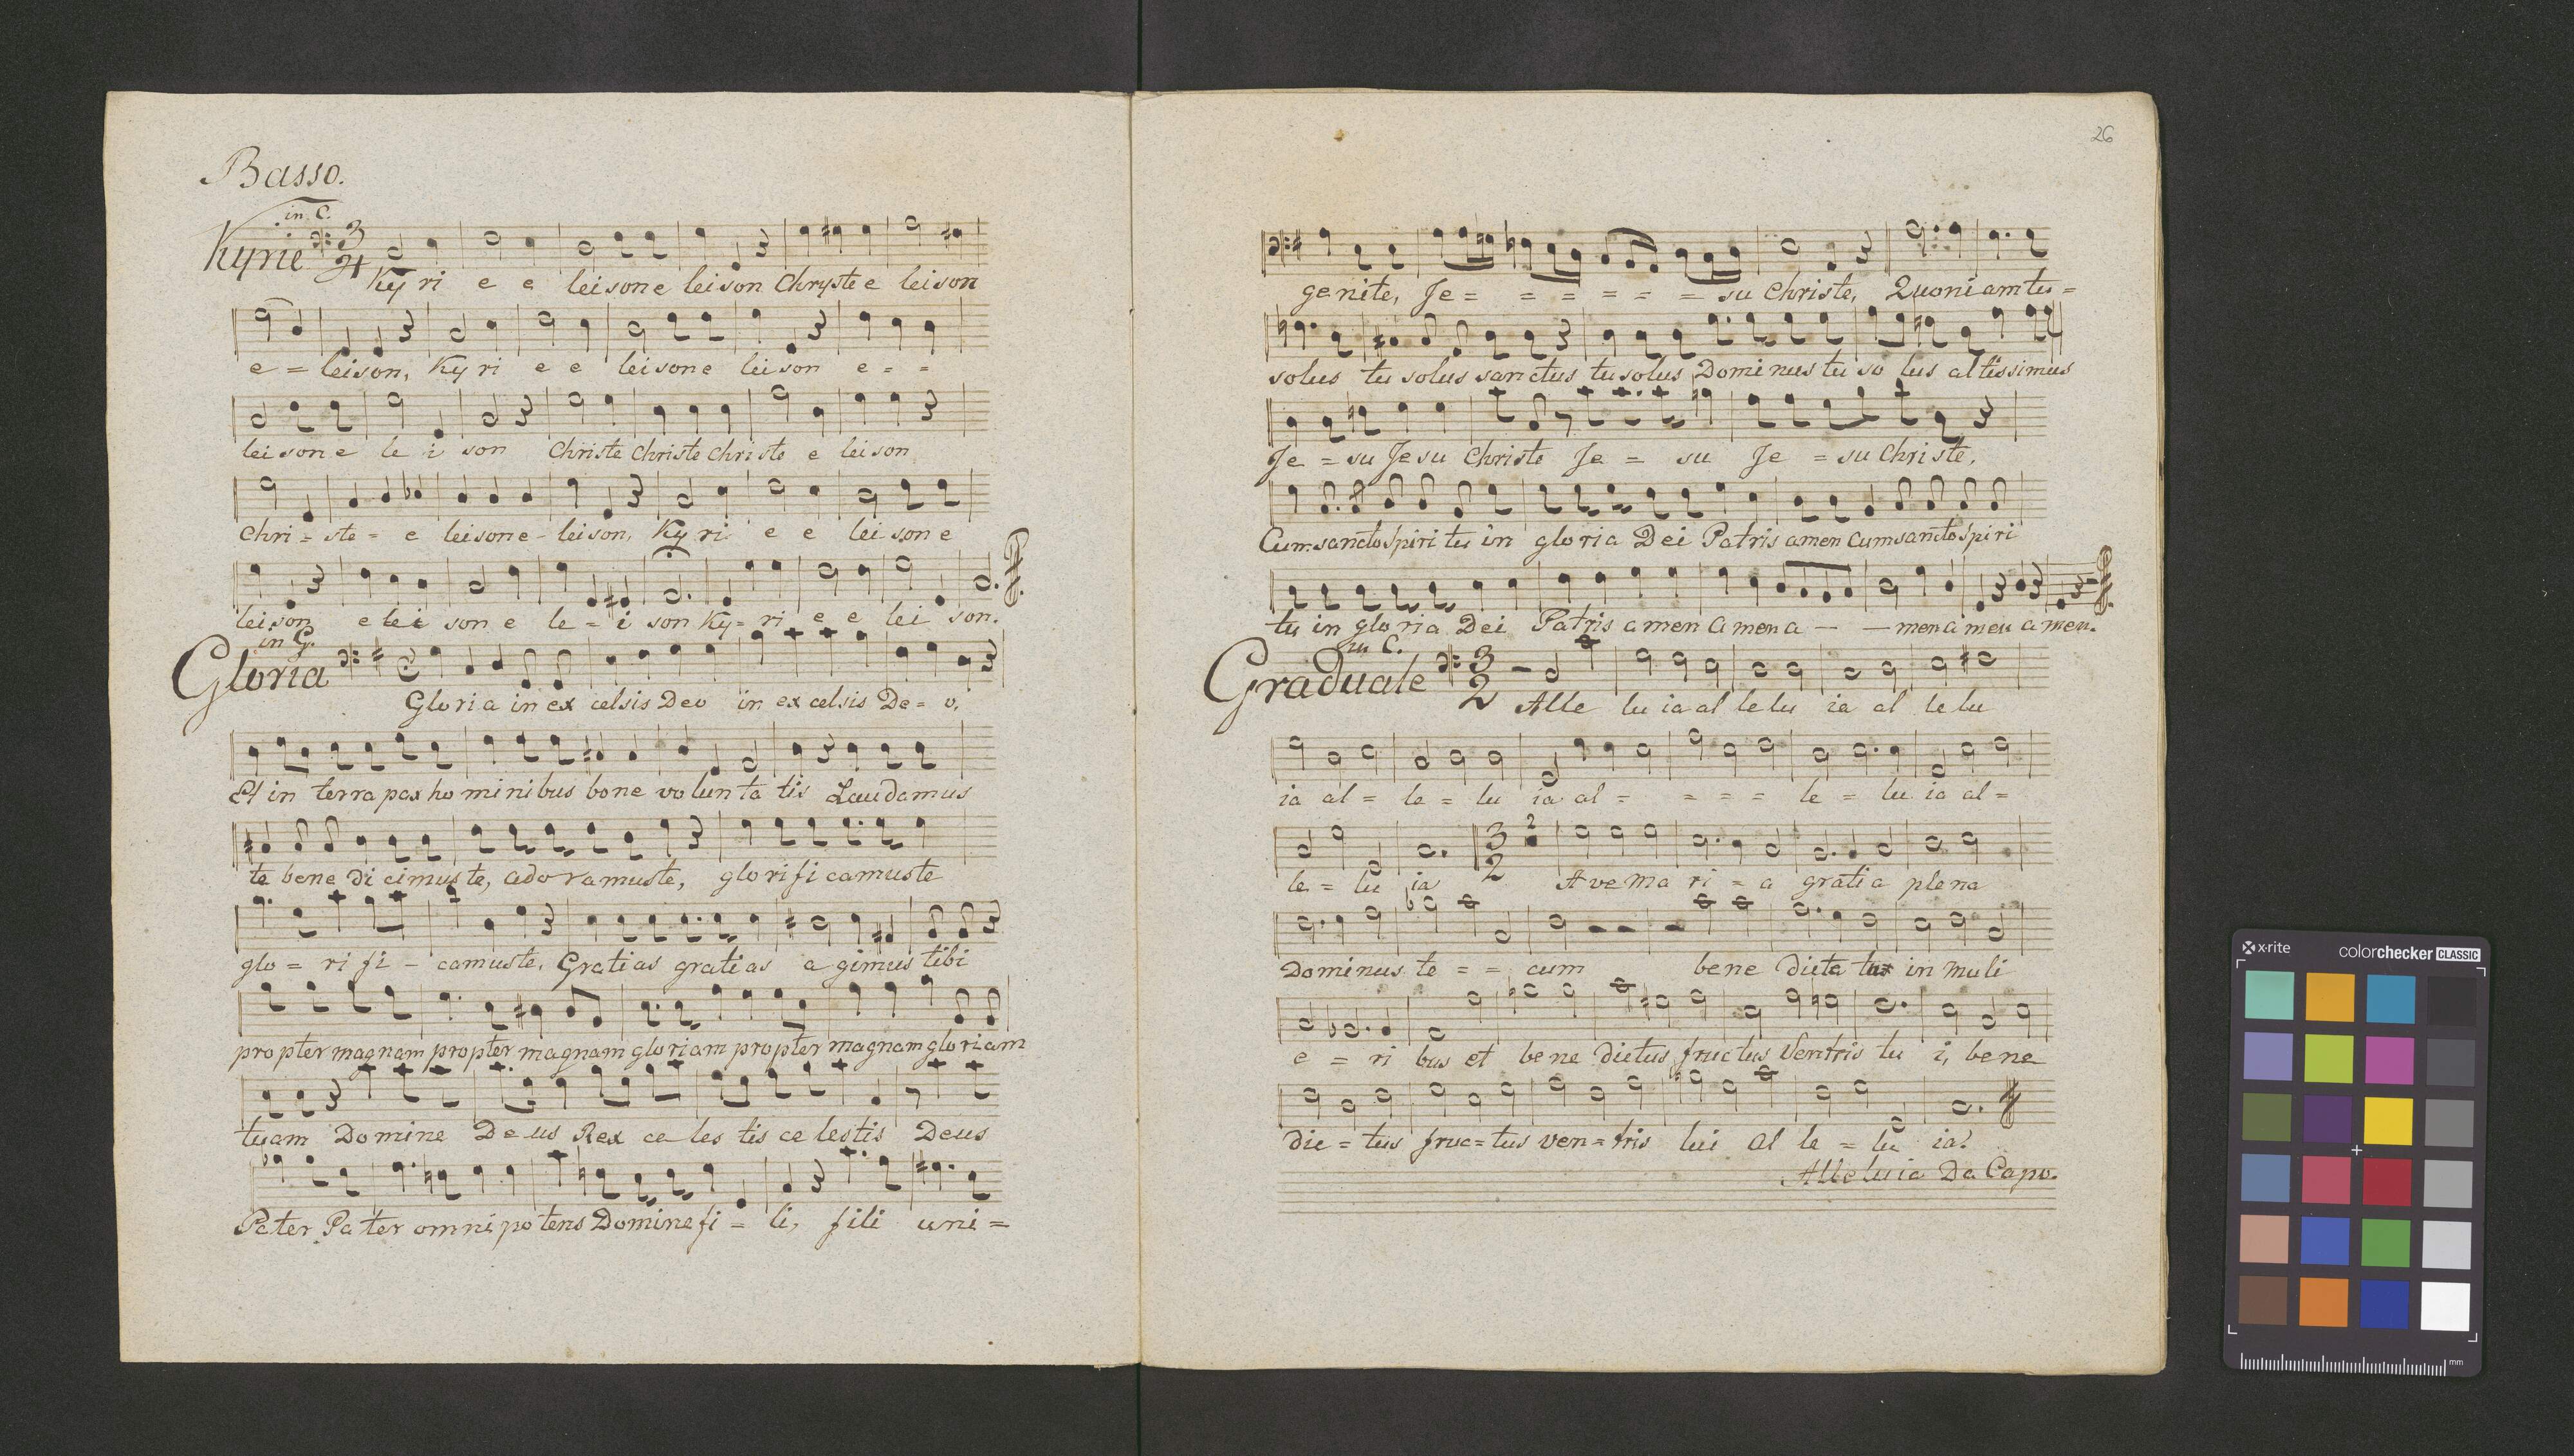 Basso.
in C.
Kyrie 3/4
Ky ri e e leisone leison Chryste e leison
e = leison, Ky ri e e leisone leison e = =
leisone le i son Christe Christe Christe e leison
Chri = ste = e leisone - leison, Ky ri e e leisone
leison e lei son e le = i son Ky = ri e e lei son.
in G.
Gloria
Gloria in ex celsis Deo in ex celsis De = o,
Et in terra pax ho minibus bone volun ta tis Laudamus
te bene di cimus te, adoramuste, glorificamuste
glo = ri fi - camuste, Gratias gratias a gimus tibi
propter magnam propter magnam gloriam propter magnam gloriam
tuam Domine De us Rex ce les tis ce lestis Deus
Pater Pa ter omni po tens Domine fi = li, fili uni =
26
genite, Je = = = = = = su Christe, Quoniam tu =
solus tu solus sanctus tu solus Dominus tu so lus altissimus
Je = su Jesu Christe Je = su Je = su Christe,
Cum sancto Spiri tu in gloria Dei Patris amen Cum sancto Spiri
tu in gloria Dei Patris amen amen a - - men amen amen.
in C.
Graduale 3/2
Alle lu ia al le lu ia al le lu
ia al = le = lu ia al = = = = le = lu ia al =
2
le = lu ia 3/2 Ave Ma ri = a gratia plena
Dominus te = = cum bene dicta tu in muli
e = ri bus et bene dictus fructus Ventris tu i, bene
dic = tus fruc = tus ven = tris tui Al le = lu ia.
Alleluia Da Capo.
x·rite colorchecker CLASSIC
mm